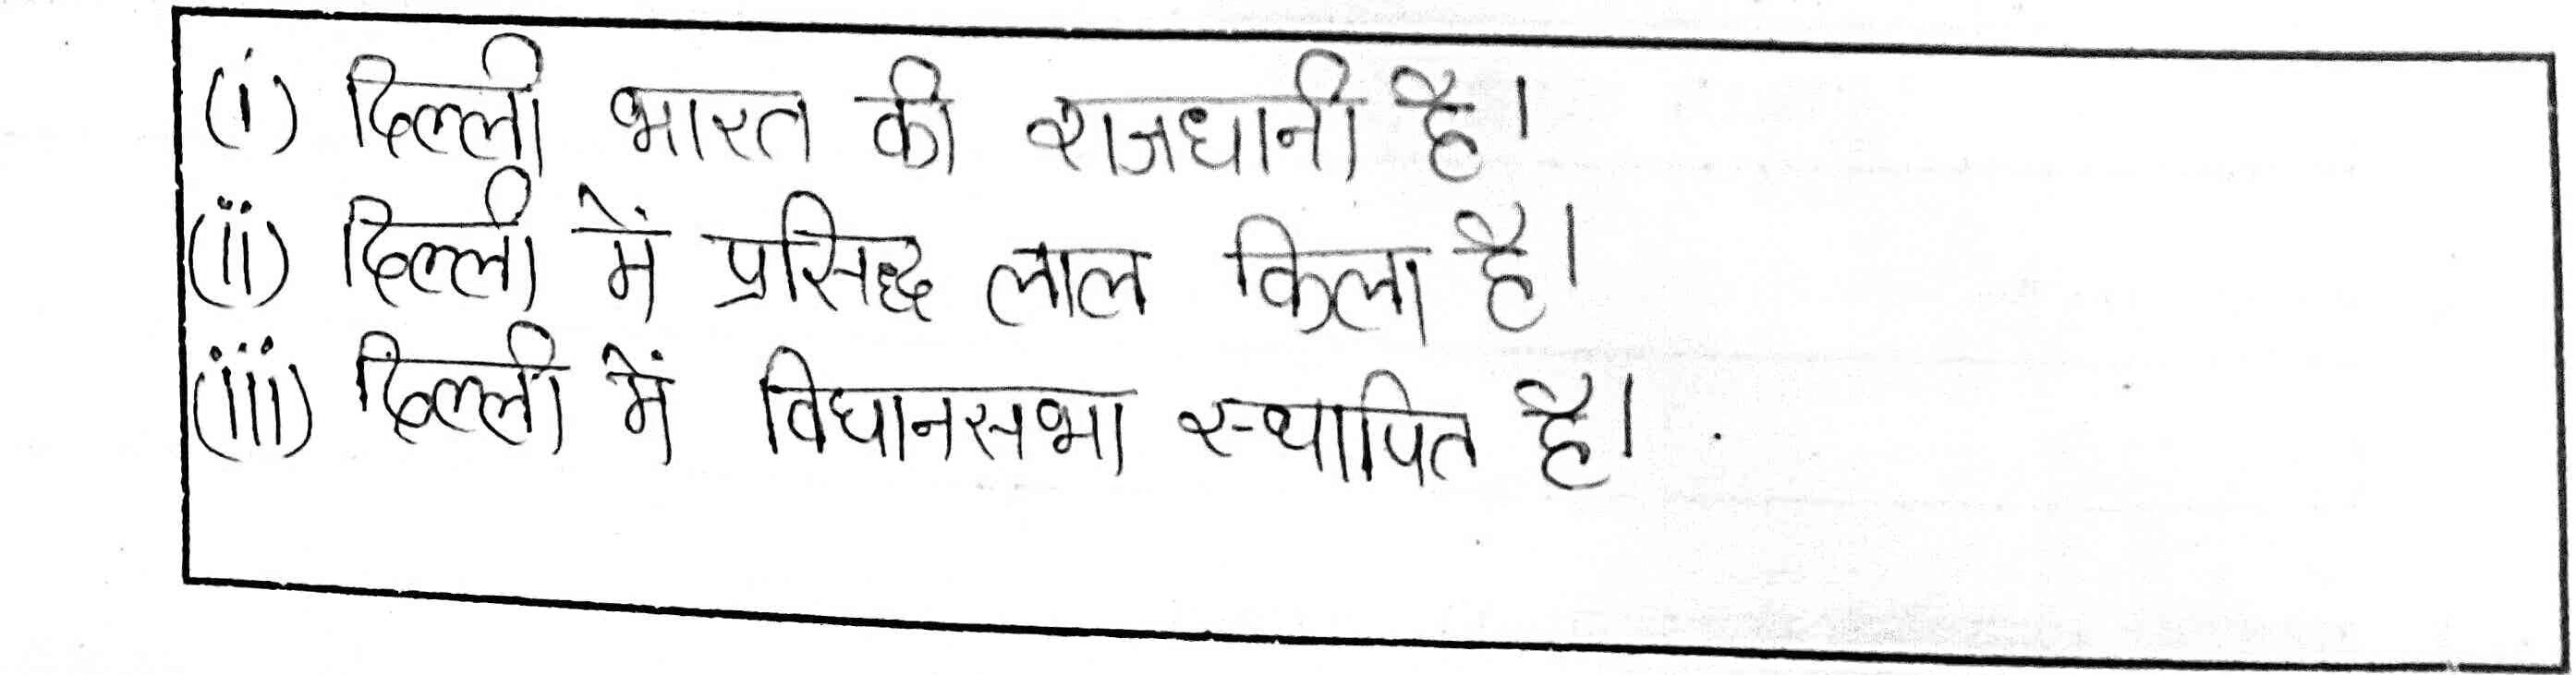 (i) दिल्ली भारत की राजधानी है।
(ii) दिल्ली में प्रसिद्ध लाल किला है।
(iii) दिल्ली में विधानसभा स्थापित है।